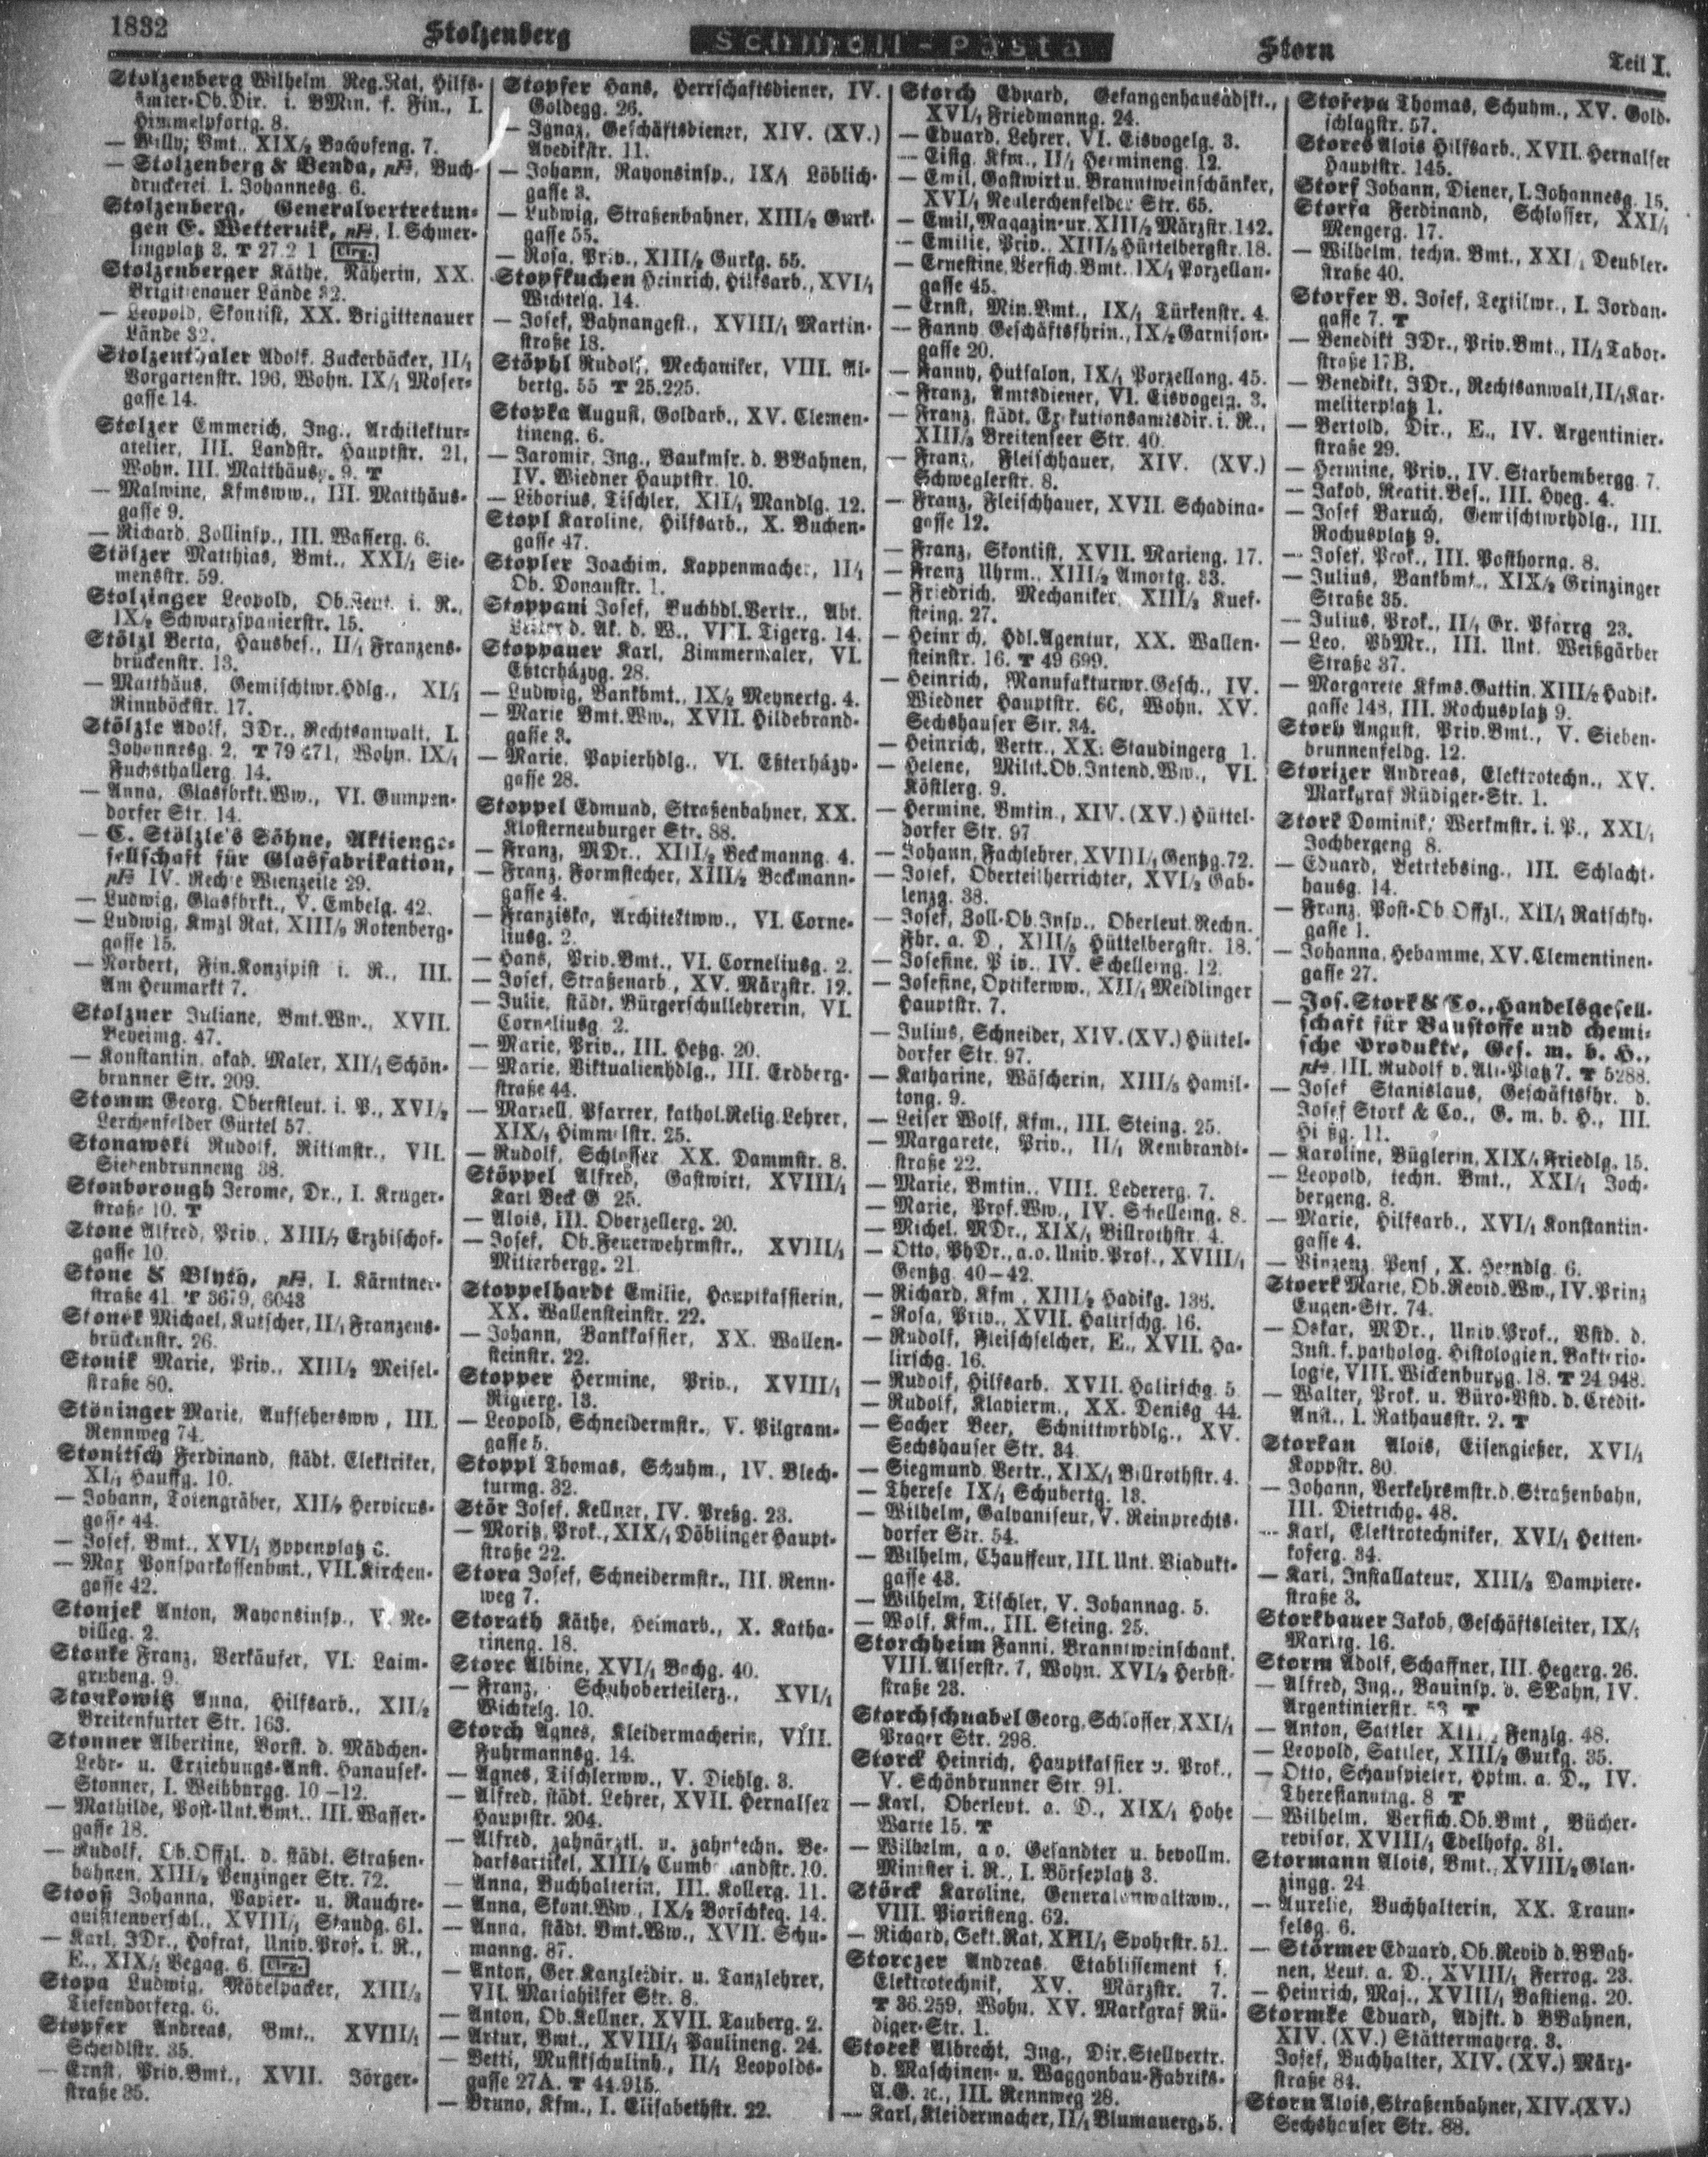 1832
Stolzenberg
Schmoll-Pasta
Storn
Teil I.
Stolzenberg Wilhelm Reg.Rat, Hilfs-
ämter-Ob.Dir. i. BMin. f. Fin., I.
Himmelpfortg. 8.
— Willy, Bmt., XIX/2 Bachofeng. 7.
— Stolzenberg & Benda, Buch-
druckerei I. Johannesg. 6.
Stolzenberg, Generalvertretun-
gen E. Wetternik, I. Schmer-
lingplatz 3. T 27 2 1 Clrg.
Stolzenberger Käthe, Näherin, XX.
Brigittenauer Lände 32.
— Leopold, Skontist, XX. Brigittenauer
Lände 32.
Stolzenthaler Adolf, Zuckerbäcker, II/1
Vorgartenstr. 196, Wohn. IX/1 Moser-
gasse 14.
Stolzer Emmerich, Ing., Architektur-
atelier, III. Landstr. Hauptstr. 21,
Wohn. III. Matthäusg. 9. T
— Malwine, Kfmsww., III. Matthäus-
gasse 9.
— Richard, Zollinsp., III. Wasserg. 6.
Stölzer Matthias, Bmt., XXI/1 Sie-
mensstr. 59.
Stolzinger Leopold, Ob.Leut. i. R.,
IX/2 Schwarzspanierstr. 15.
Stölzl Berta, Hausbes., II/1 Franzens-
brückenstr. 13.
— Matthäus, Gemischtwr.Hdlg., XI/1
Rinnböckstr. 17.
Stölzle Adolf, JDr., Rechtsanwalt, I.
Johannesg. 2, T 79 71, Wohn. IX/1
Fuchsthallerg. 14.
— Anna, Glasfbrkt.Ww., VI. Gumpen-
dorfer Str. 14.
— C. Stölzle's Söhne, Aktienge-
sellschaft für Glasfabrikation,
IV. Rechte Wienzeile 29.
— Ludwig, Glasfbrkt., V. Embelg. 42.
— Ludwig, Kmzl Rat, XIII/2 Rotenberg-
gasse 15.
— Norbert, Fin.Konzipist i. R., III.
Am Heumarkt 7.
Stolzner Juliane, Bmt.Ww., XVII.
Beheimg. 47.
— Konstantin, akad. Maler, XII/1 Schön-
brunner Str. 209.
Stomm Georg, Oberstleut. i. P., XVI/2
Lerchenfelder Gürtel 57.
Stonawski Rudolf, Rittmstr., VII.
Siebenbrunneng 38.
Stonborough Jerome, Dr., I. Kruger-
straße 10. T
Stone Alfred, Priv., XIII/7 Erzbischof-
gasse 10.
Stone & Blyth, I. Kärntner-
straße 41 T 3679, 6043
Stonek Michael, Kutscher, II/1 Franzens-
brückenstr. 26.
Stonik Marie, Priv., XIII/2 Meisel-
straße 80.
Stöninger Marie, Aufsehersww., III.
Rennweg 74.
Stonitsch Ferdinand, städt. Elektriker,
XI/1 Hauffg. 10.
— Johann, Totengräber, XII/2 Hervicus-
gasse 44.
— Josef, Bmt., XVI/1 Yppenplatz 6.
— Max Ponsparkassenbmt., VII. Kirchen-
gasse 42.
Stonjek Anton, Rayonsinsp., V. Ne-
villeg. 2.
Stonke Franz, Verkäufer, VI. Laim-
grubeng. 9.
Stonkowitz Anna, Hilfsarb., XII/2
Breitenfurter Str. 163.
Stonner Albertine, Vorst. d. Mädchen-
Lehr- u. Erziehungs-Anst. Hanausek-
Stonner, I. Weihburgg. 10—12.
— Mathilde, Post-Unt.Bmt., III. Wasser-
gasse 18.
— Rudolf, Ob.Offzl. d. städt. Straßen-
bahnen, XIII/2 Penzinger Str. 72.
Stooß Johanna, Papier- u. Rauchre-
quisitenverschl., XVIII/1 Standg. 61.
— Karl, JDr., Hofrat, Univ.Prof. i. R.,
E., XIX/1 Vegag. 6. Clrg.
Stopa Ludwig, Möbelpacker, XIII/3
Tiefendorferg. 6.
Stopfer Andreas, Bmt., XVIII/1
Scheidlstr. 35.
— Ernst, Priv.Bmt., XVII. Jörger-
straße 35.
Stopfer Hans, Herrschaftsdiener, IV.
Goldegg. 26.
— Ignaz, Geschäftsdiener, XIV. (XV.)
Avedikstr. 11.
— Johann, Rayonsinsp., IX/1 Löblich-
gasse 3.
— Ludwig, Straßenbahner, XIII/2 Gurk-
gasse 55.
— Rosa, Priv., XIII/2 Gurkg. 55.
Stopfkuchen Heinrich, Hilfsarb., XVI/1
Wichtelg. 14.
— Josef, Bahnangest., XVIII/1 Martin-
straße 18.
Stöphl Rudolf, Mechaniker, VIII. Al-
bertg. 55 T 25.225.
Stopka August, Goldarb., XV. Clemen-
tineng. 6.
— Jaromir, Ing., Baukmsr. d. BBahnen,
IV. Wiedner Hauptstr. 10.
— Liborius, Tischler, XII/1 Mandlg. 12.
Stopl Karoline, Hilfsarb., X. Buchen-
gasse 47.
Stopler Joachim, Kappenmacher, II/1
Ob. Donaustr. 1.
Stoppani Josef, Buchhdl.Vertr., Abt.
Leiter d. Ak. d. W., VIII. Tigerg. 14.
Stoppauer Karl, Zimmermaler, VI.
Eßterházyg. 28.
— Ludwig, Bankbmt., IX/2 Meynertg. 4.
— Marie Bmt.Ww., XVII. Hildebrand-
gasse 3.
— Marie, Papierhdlg., VI. Eßterházy-
gasse 28.
Stoppel Edmund, Straßenbahner, XX.
Klosterneuburger Str. 88.
— Franz, MDr., XIII/2 Beckmanng. 4.
— Franz, Formstecher, XIII/2 Beckmann-
gasse 4.
— Franziska, Architektww., VI. Corne-
liusg. 2.
— Hans, Priv.Bmt., VI. Corneliusg. 2.
— Josef, Straßenarb., XV. Märzstr. 12.
— Julie, städt. Bürgerschullehrerin, VI.
Corneliusg. 2.
— Marie, Priv., III. Hetzg. 20.
— Marie, Viktualienhdlg., III. Erdberg-
straße 44.
— Marzell, Pfarrer, kathol.Relig.Lehrer,
XIX/1 Himmelstr. 25.
— Rudolf, Schlosser, XX. Dammstr. 8.
Stöppel Alfred, Gastwirt, XVIII/1
Karl Beck G 25.
— Alois, III. Oberzellerg. 20.
— Josef, Ob.Feuerwehrmstr., XVIII/1
Mitterbergg. 21.
Stoppelhardt Emilie, Hauptkassierin,
XX. Wallensteinstr. 22.
— Johann, Bankkassier, XX. Wallen-
steinstr. 22.
Stopper Hermine, Priv., XVIII/1
Riglerg. 13.
— Leopold, Schneidermstr., V. Pilgram-
gasse 5.
Stoppl Thomas, Schuhm., IV. Blech-
turmg. 32.
Stör Josef, Kellner, IV. Preßg. 23.
— Moritz, Prok., XIX/1 Döblinger Haupt-
straße 22.
Stora Josef, Schneidermstr., III. Renn-
weg 7.
Storath Käthe, Heimarb., X. Katha-
rineng. 18.
Store Albine, XVI/1 Bachg. 40.
— Franz, Schuhoberteilerz., XVI/1
Wichtelg. 10.
Storch Agnes, Kleidermacherin, VIII.
Fuhrmannsg. 14.
— Agnes, Tischlerww., V. Diehlg. 3.
— Alfred, städt. Lehrer, XVII. Hernalser
Hauptstr. 204.
— Alfred, zahnärztl. u. zahntechn. Be-
darfsartikel, XIII/2 Cumberlandstr. 10.
— Anna, Buchhalterin, III. Kollerg. 11.
— Anna, Skont.Ww., IX/2 Borschkeg. 14.
— Anna, städt. Bmt.Ww., XVII. Schu-
manng. 87.
— Anton, Ger.Kanzleidir. u. Tanzlehrer,
VII. Mariahilfer Str. 8.
— Anton, Ob.Kellner, XVII. Tauberg. 2.
— Artur, Bmt., XVIII/1 Paulineng. 24.
— Betti, Musikschulinh., II/1 Leopolds-
gasse 27A. T 44.915.
— Bruno, Kfm., I. Elisabethstr. 22.
Storch Eduard, Gefangenhausadjkt.,
XVI/1 Friedmanng. 24.
— Eduard, Lehrer, VI. Eisvogelg. 3.
— Eisig, Kfm., II/1 Hermineng. 12.
— Emil, Gastwirt u. Branntweinschänker,
XVI/1 Neulerchenfelder Str. 65.
— Emil, Magazineur XIII/2 Märzstr. 142.
— Emilie, Priv., XIII/5 Hüttelbergstr. 18.
— Ernestine, Versich.Bmt. IX/1 Porzellan-
gasse 45.
— Ernst, Min.Bmt., IX/1 Türkenstr. 4.
— Fanny Geschäftsfhrin., IX/2 Garnison-
gasse 20.
— Fanny, Hutsalon, IX/1 Porzellang. 45.
— Franz, Amtsdiener, VI. Eisvogelg. 3.
— Franz, städt. Exekutionsamtsdir. i. R.,
XIII/3 Breitenseer Str. 40.
— Franz, Fleischhauer, XIV. (XV.)
Schweglerstr. 8.
— Franz, Fleischhauer, XVII. Schadina-
gasse 12.
— Franz, Skontist, XVII. Marieng. 17.
— Franz Uhrm., XIII/2 Amortg. 33.
— Friedrich, Mechaniker, XIII/3 Kuef-
steing. 27.
— Heinrich, Hdl.Agentur, XX. Wallen-
steinstr. 16. T 49 699.
— Heinrich, Manufakturwr.Gesch., IV.
Wiedner Hauptstr. 66, Wohn. XV.
Sechshauser Str. 34.
— Heinrich, Vertr., XX. Staudingerg 1.
— Helene, Milit.Ob.Intend.Ww., VI.
Köstlerg. 9.
— Hermine, Bmtin., XIV. (XV.) Hüttel-
dorfer Str. 97
— Johann, Fachlehrer, XVIII/1 Gentzg. 72.
— Josef, Oberteilherrichter, XVI/2 Gab-
lenzg. 38.
— Josef, Zoll-Ob.Insp., Oberleut. Rechn.
Fhr. a. D., XIII/5 Hüttelbergstr. 18.
— Josefine, Priv., IV. Schelleing. 12.
— Josefine, Optikerww., XII/1 Meidlinger
Hauptstr. 7.
— Julius, Schneider, XIV. (XV.) Hüttel-
dorfer Str. 97.
— Katharine, Wäscherin, XIII/3 Hamil-
tong. 9.
— Leiser Wolf, Kfm., III. Steing. 25.
— Margarete, Priv., II/1 Rembrandt-
straße 22.
— Marie, Bmtin., VIII. Ledererg. 7.
— Marie, Prof.Ww., IV. Schelleing. 8.
— Michel, MDr., XIX/1 Billrothstr. 4.
— Otto, PhDr., a.o. Univ.Prof., XVIII/1
Gentzg. 40—42.
— Richard, Kfm., XIII/2 Hadikg. 136.
— Rosa, Priv., XVII. Halirschg. 16.
— Rudolf, Fleischselcher, E., XVII. Ha-
lirschg. 16.
— Rudolf, Hilfsarb. XVII. Halirschg. 5
— Rudolf, Klavierm., XX. Denisg 44.
— Sacher Beer, Schnittwrhdlg., XV.
Sechshauser Str. 34.
— Siegmund, Vertr., XIX/1 Billrothstr. 4.
— Therese IX/1 Schubertg. 13.
— Wilhelm, Galvaniseur, V. Reinprechts-
dorfer Str. 54.
— Wilhelm, Chauffeur, III. Unt. Viadukt-
gasse 43.
— Wilhelm, Tischler, V. Johannag. 5.
— Wolf, Kfm., III. Steing. 25.
Storchheim Fanni, Branntweinschank,
VIII. Alserstr. 7, Wohn. XVI/2 Herbst-
straße 23.
Storchschnabel Georg, Schlosser, XXI/1
Prager Str. 298.
Storck Heinrich, Hauptkassier u. Prok.,
V. Schönbrunner Str. 91.
— Karl, Oberleut. a. D., XIX/1 Hohe
Warte 15. T
— Wilhelm, ao. Gesandter u. bevollm.
Minister i. R., I. Börseplatz 3.
Störck Karoline, Generalanwaltww.,
VIII. Piaristeng. 62.
— Richard, Sekt.Rat, XIII/1 Spohrstr. 51.
Storczer Andreas, Etablissement f.
Elektrotechnik, XV. Märzstr. 7.
T 36.259, Wohn. XV. Markgraf Rü-
diger-Str. 1.
Storek Albrecht, Ing., Dir.Stellvertr.
d. Maschinen- u. Waggonbau-Fabriks-
A.G. 2c., III. Rennweg 28.
— Karl, Kleidermacher, II/1 Blumauerg. 5.
Storepa Thomas, Schuhm., XV. Gold-
schlagstr. 57.
Stores Alois Hilfsarb., XVII. Hernalser
Hauptstr. 145.
Storf Johann, Diener, I. Johannesg. 15.
Storfa Ferdinand, Schlosser, XXI/1
Mengerg. 17.
— Wilhelm, techn. Bmt., XXI/1 Deubler-
straße 40.
Storfer B. Josef, Textilwr., I. Jordan-
gasse 7. T
— Benedikt JDr., Priv.Bmt., II/1 Tabor-
straße 17B.
— Benedikt, JDr., Rechtsanwalt, II/1 Kar-
meliterplatz 1.
— Bertold, Dir., E., IV. Argentinier-
straße 29.
— Hermine, Priv., IV. Starhembergg. 7.
— Jakob, Realit.Bes., III. Hyeg. 4.
— Josef Baruch, Gemischtwrhdlg., III.
Rochusplatz 9.
— Josef, Prok., III. Posthorng. 8.
— Julius, Bankbmt., XIX/2 Grinzinger
Straße 35.
— Julius, Prok., II/1 Gr. Pfarrg 23.
— Leo, PhMr., III. Unt. Weißgärber
Straße 37.
— Margarete Kfms.Gattin, XIII/2 Hadik-
gasse 148, III. Rochusplatz 9.
Storh August, Priv.Bmt., V. Sieben-
brunnenfeldg. 12.
Storizer Andreas, Elektrotechn., XV.
Markgraf Rüdiger-Str. 1.
Stork Dominik, Werkmstr. i. P., XXI/1
Jochbergeng 8.
— Eduard, Betriebsing., III. Schlacht-
hausg. 14.
— Franz, Post-Ob Offzl., XII/1 Ratschky-
gasse 1.
— Johanna, Hebamme, XV. Clementinen-
gasse 27.
— Jos. Stork & Co., Handelsgesell-
schaft für Baustoffe und chemi-
sche Produkte, Ges. m. b. H.,
III. Rudolf v. Alt-Platz 7. T 5288.
— Josef Stanislaus, Geschäftsfhr. d.
Josef Stork & Co., G. m. b. H., III.
Hießg. 11.
— Karoline, Büglerin, XIX/1 Friedlg. 15.
— Leopold, techn. Bmt., XXI/1 Joch-
bergeng. 8.
— Marie, Hilfsarb., XVI/1 Konstantin-
gasse 4.
— Vinzenz, Pens., X. Herndlg. 6.
Stoerk Marie, Ob.Revid.Ww., IV. Prinz
Eugen-Str. 74.
— Oskar, MDr., Univ.Prof., Vstd. d.
Inst. f. patholog. Histologie u. Bakterio-
logie, VIII. Wickenburgg. 18. T 24 948.
— Walter, Prok. u. Büro-Vstd. d. Credit-
Anst., I. Rathausstr. 2. T
Storkan Alois, Eisengießer, XVI/1
Koppstr. 80.
— Johann, Verkehrsmstr. d. Straßenbahn,
III. Dietrichg. 48.
— Karl, Elektrotechniker, XVI/1 Hetten-
koferg. 34.
— Karl, Installateur, XIII/3 Dampiere-
straße 3.
Storkbauer Jakob, Geschäftsleiter, IX/1
Marktg. 16.
Storm Adolf, Schaffner, III. Hegerg. 26.
— Alfred, Ing., Bauinsp. d. SBahn, IV.
Argentinierstr. 53 T
— Anton, Sattler XIII/ Fenzlg. 48.
— Leopold, Sattler, XIII/2 Gurkg. 35.
— Otto, Schauspieler, Hptm. a. D., IV.
Theresianumg. 8 T
— Wilhelm, Versich.Ob.Bmt., Bücher-
revisor, XVIII/1 Edelhofg. 31.
Stormann Alois, Bmt., XVIII/2 Glan-
zingg. 24
— Aurelie, Buchhalterin, XX. Traun-
felsg. 6.
— Störmer Eduard, Ob.Revid d. BBah-
nen, Leut. a. D., XVIII/1 Ferrog. 23.
— Heinrich, Maj., XVIII/1 Bastieng. 20.
Stormke Eduard, Adjkt. d. BBahnen,
XIV. (XV.) Stättermayerg. 3.
Josef, Buchhalter, XIV. (XV.) März-
straße 84.
Storn Alois, Straßenbahner, XIV. (XV.)
Sechshauser Str. 88.